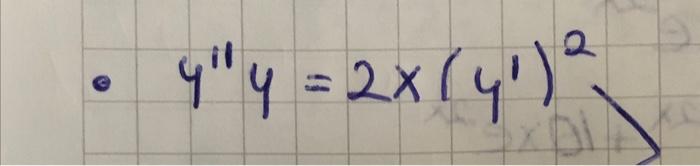 • y''y = 2x(y')²